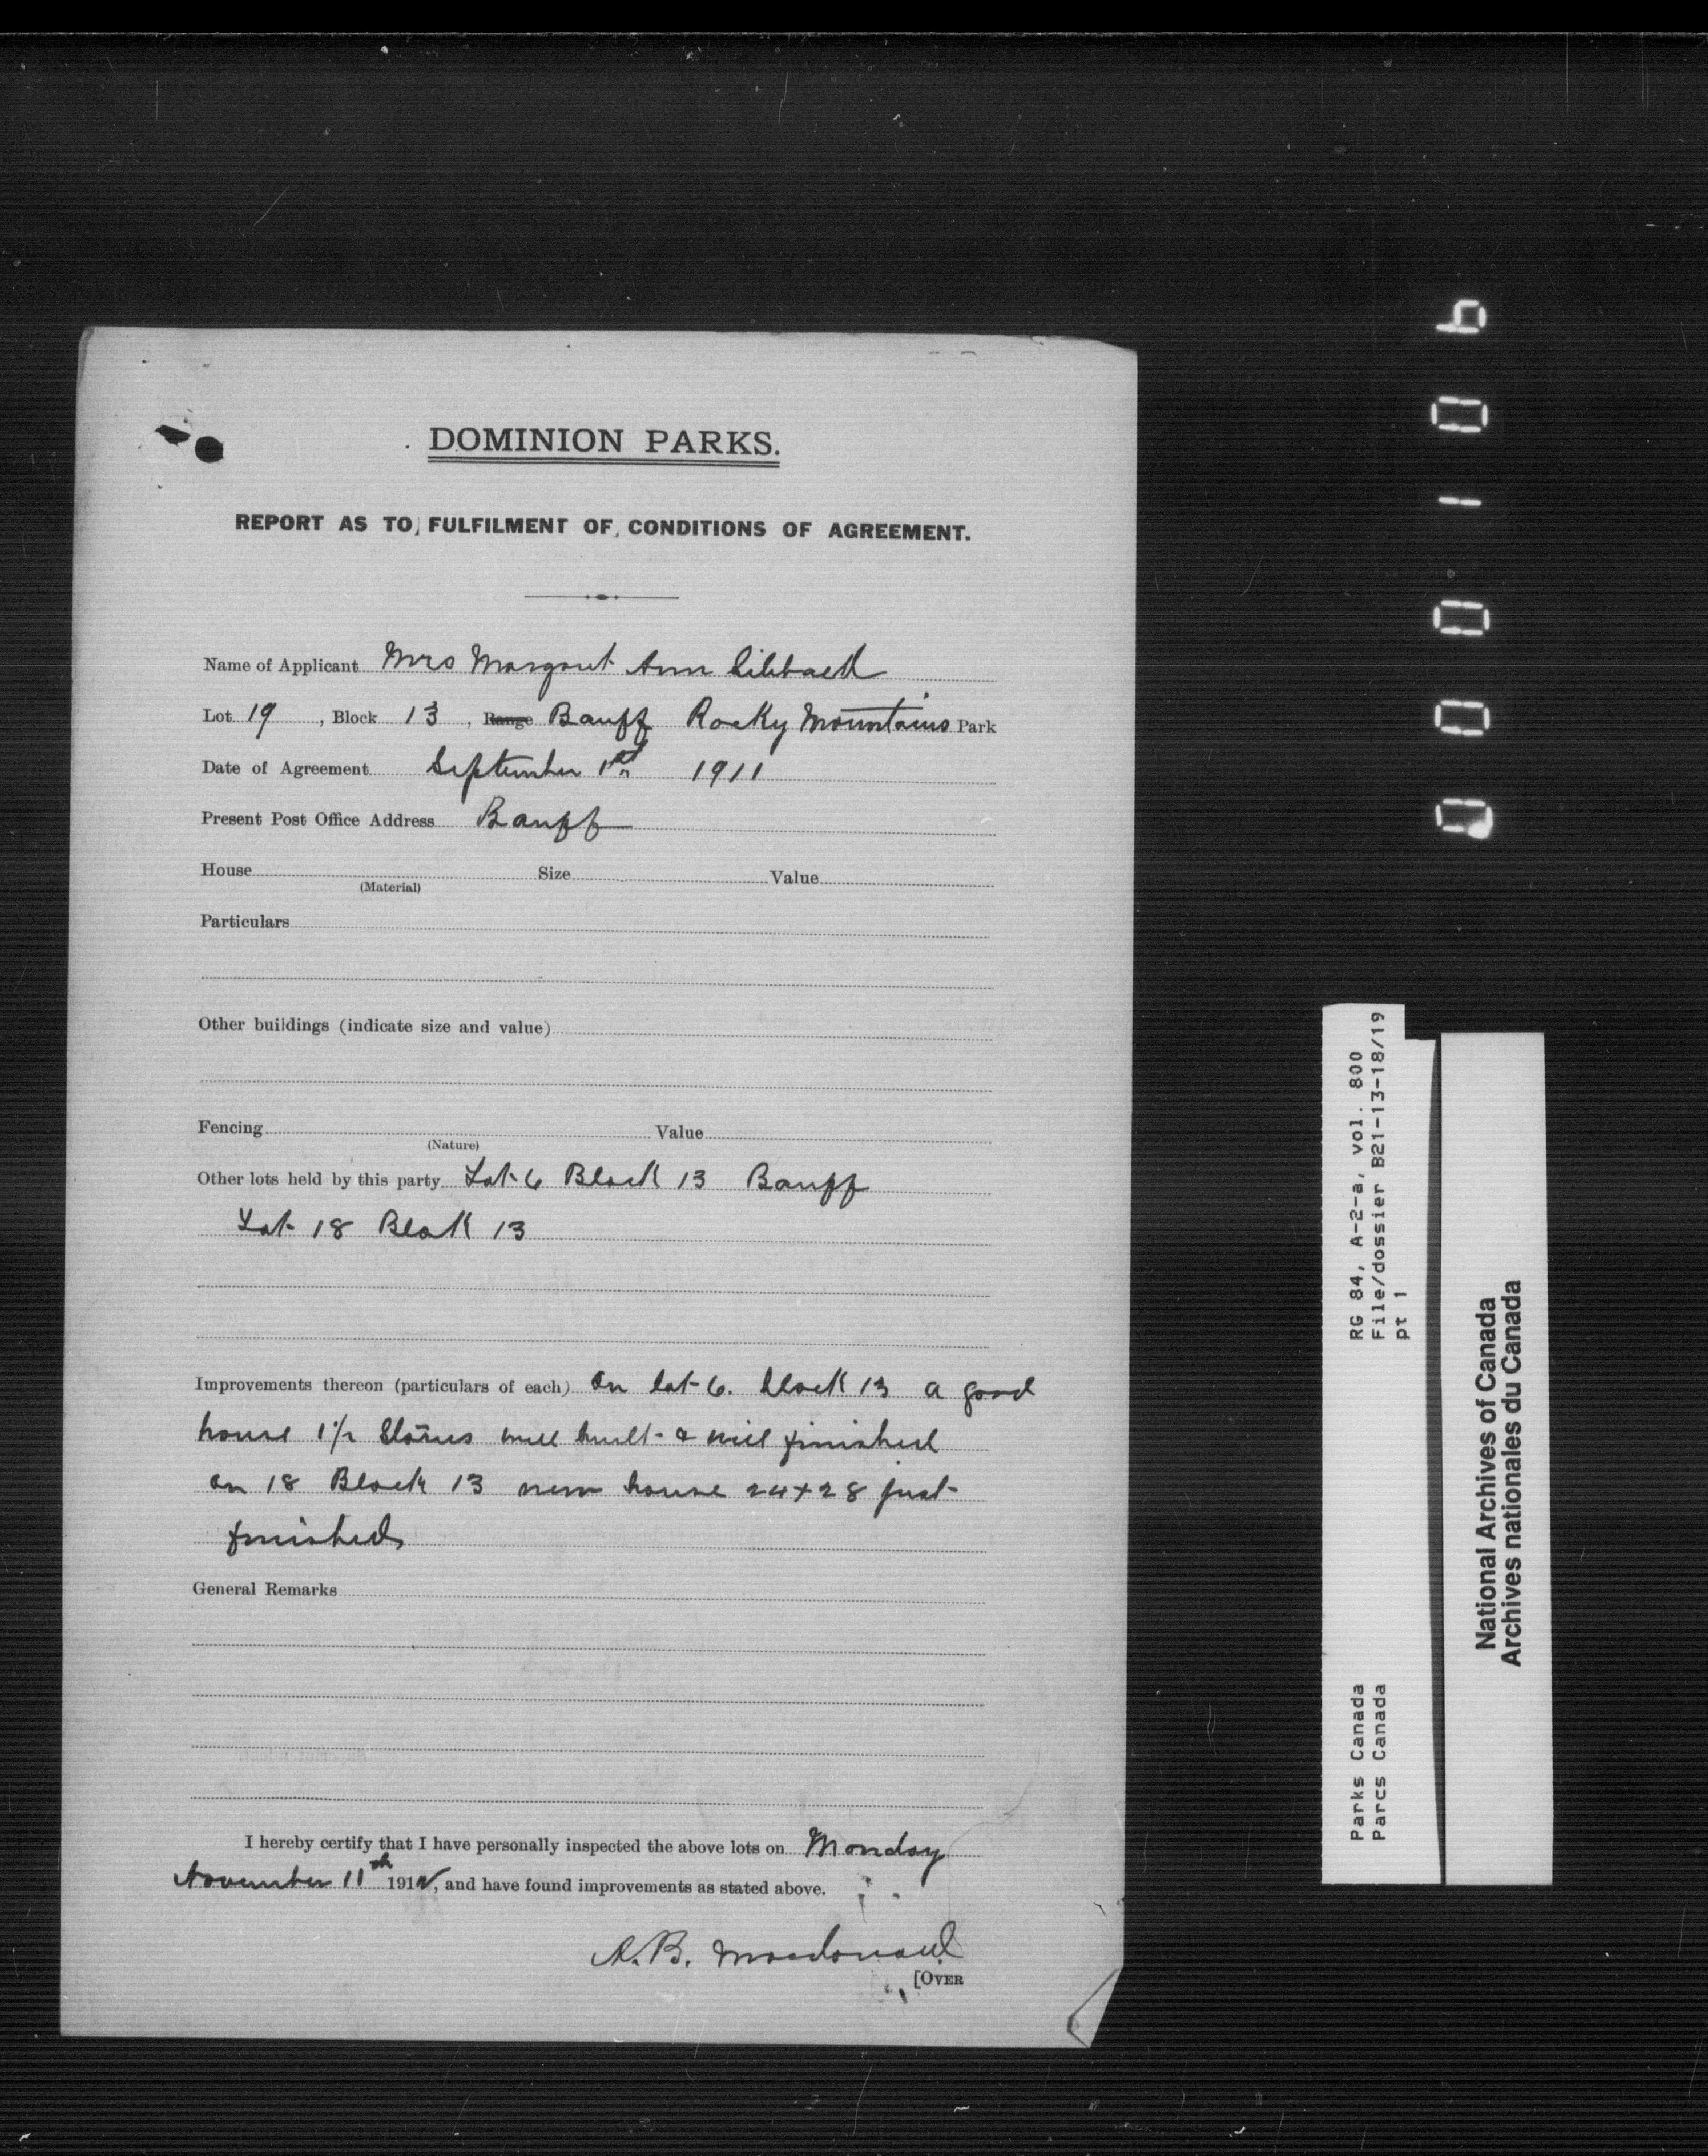 DOMINION PARKS.
REPORT AS TO FULFILMENT OF CONDITIONS OF AGREEMENT.
Name of Applicant Mrs Margaret Ann Sibbald
Lot 19, Block 13, Range Banff Rocky Mountains Park
Date of Agreement September 1st 1911
Present Post Office Address Banff
House Size Value
(Material)
Particulars
Other buildings (indicate size and value)
Fencing Value
(Nature)
Other lots held by this party Lot 6 Block 13 Banff
Lot 18 Block 13
Improvements thereon (particulars of each) On lot 6. block 13 a good
house 1½ Stories well built & well finished
on 18 Block 13 new house 24x28 just
finished
General Remarks
I hereby certify that I have personally inspected the above lots on Monday
November 11th 1912, and have found improvements as stated above.
A. B. Macdonald
[OVER
RG 84, A-2-a, vol. 800
File/dossier B21-13-18/19
pt 1
Parks Canada
Parcs Canada
National Archives of Canada
Archives nationales du Canada